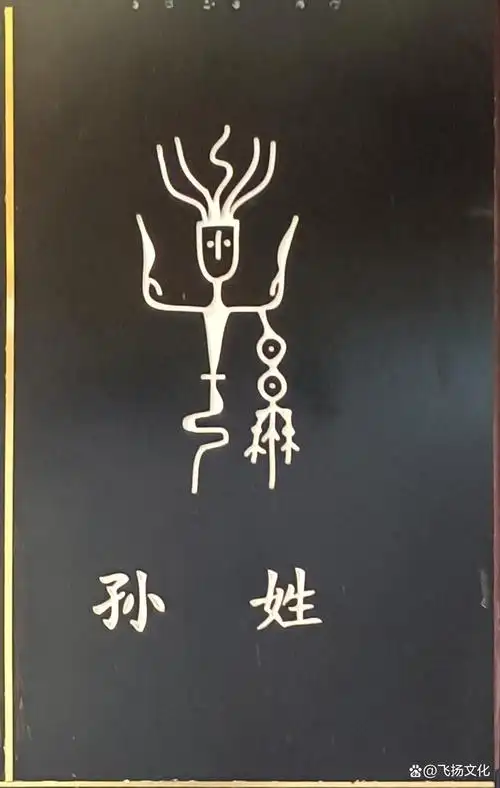 孙姓
@飞扬文化